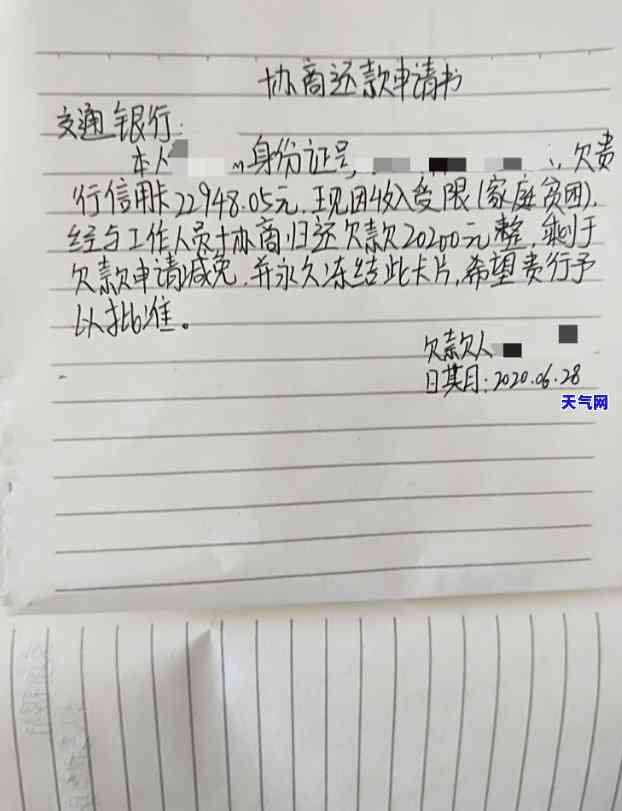 协商还款申请书
交通银行:
本人 身份证号, 欠贵
行信用卡22948.05元.现因收入受限(家庭贫困).
经与工作人员协商,归还欠款20200元整,剩于
欠款申请减免,并永久冻结此卡片,希望贵行予
以批准。
欠款人
日期:2020.06.28
天气网